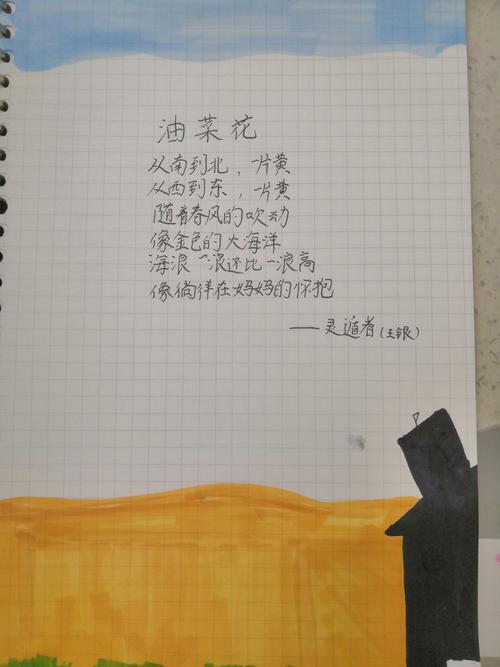 油菜花
从南到北，一片黄
从西到东，一片黄
随着春风的吹动
像金色的大海洋
海浪一浪还比一浪高
像徜徉在妈妈的怀抱
——灵遁者（王银）